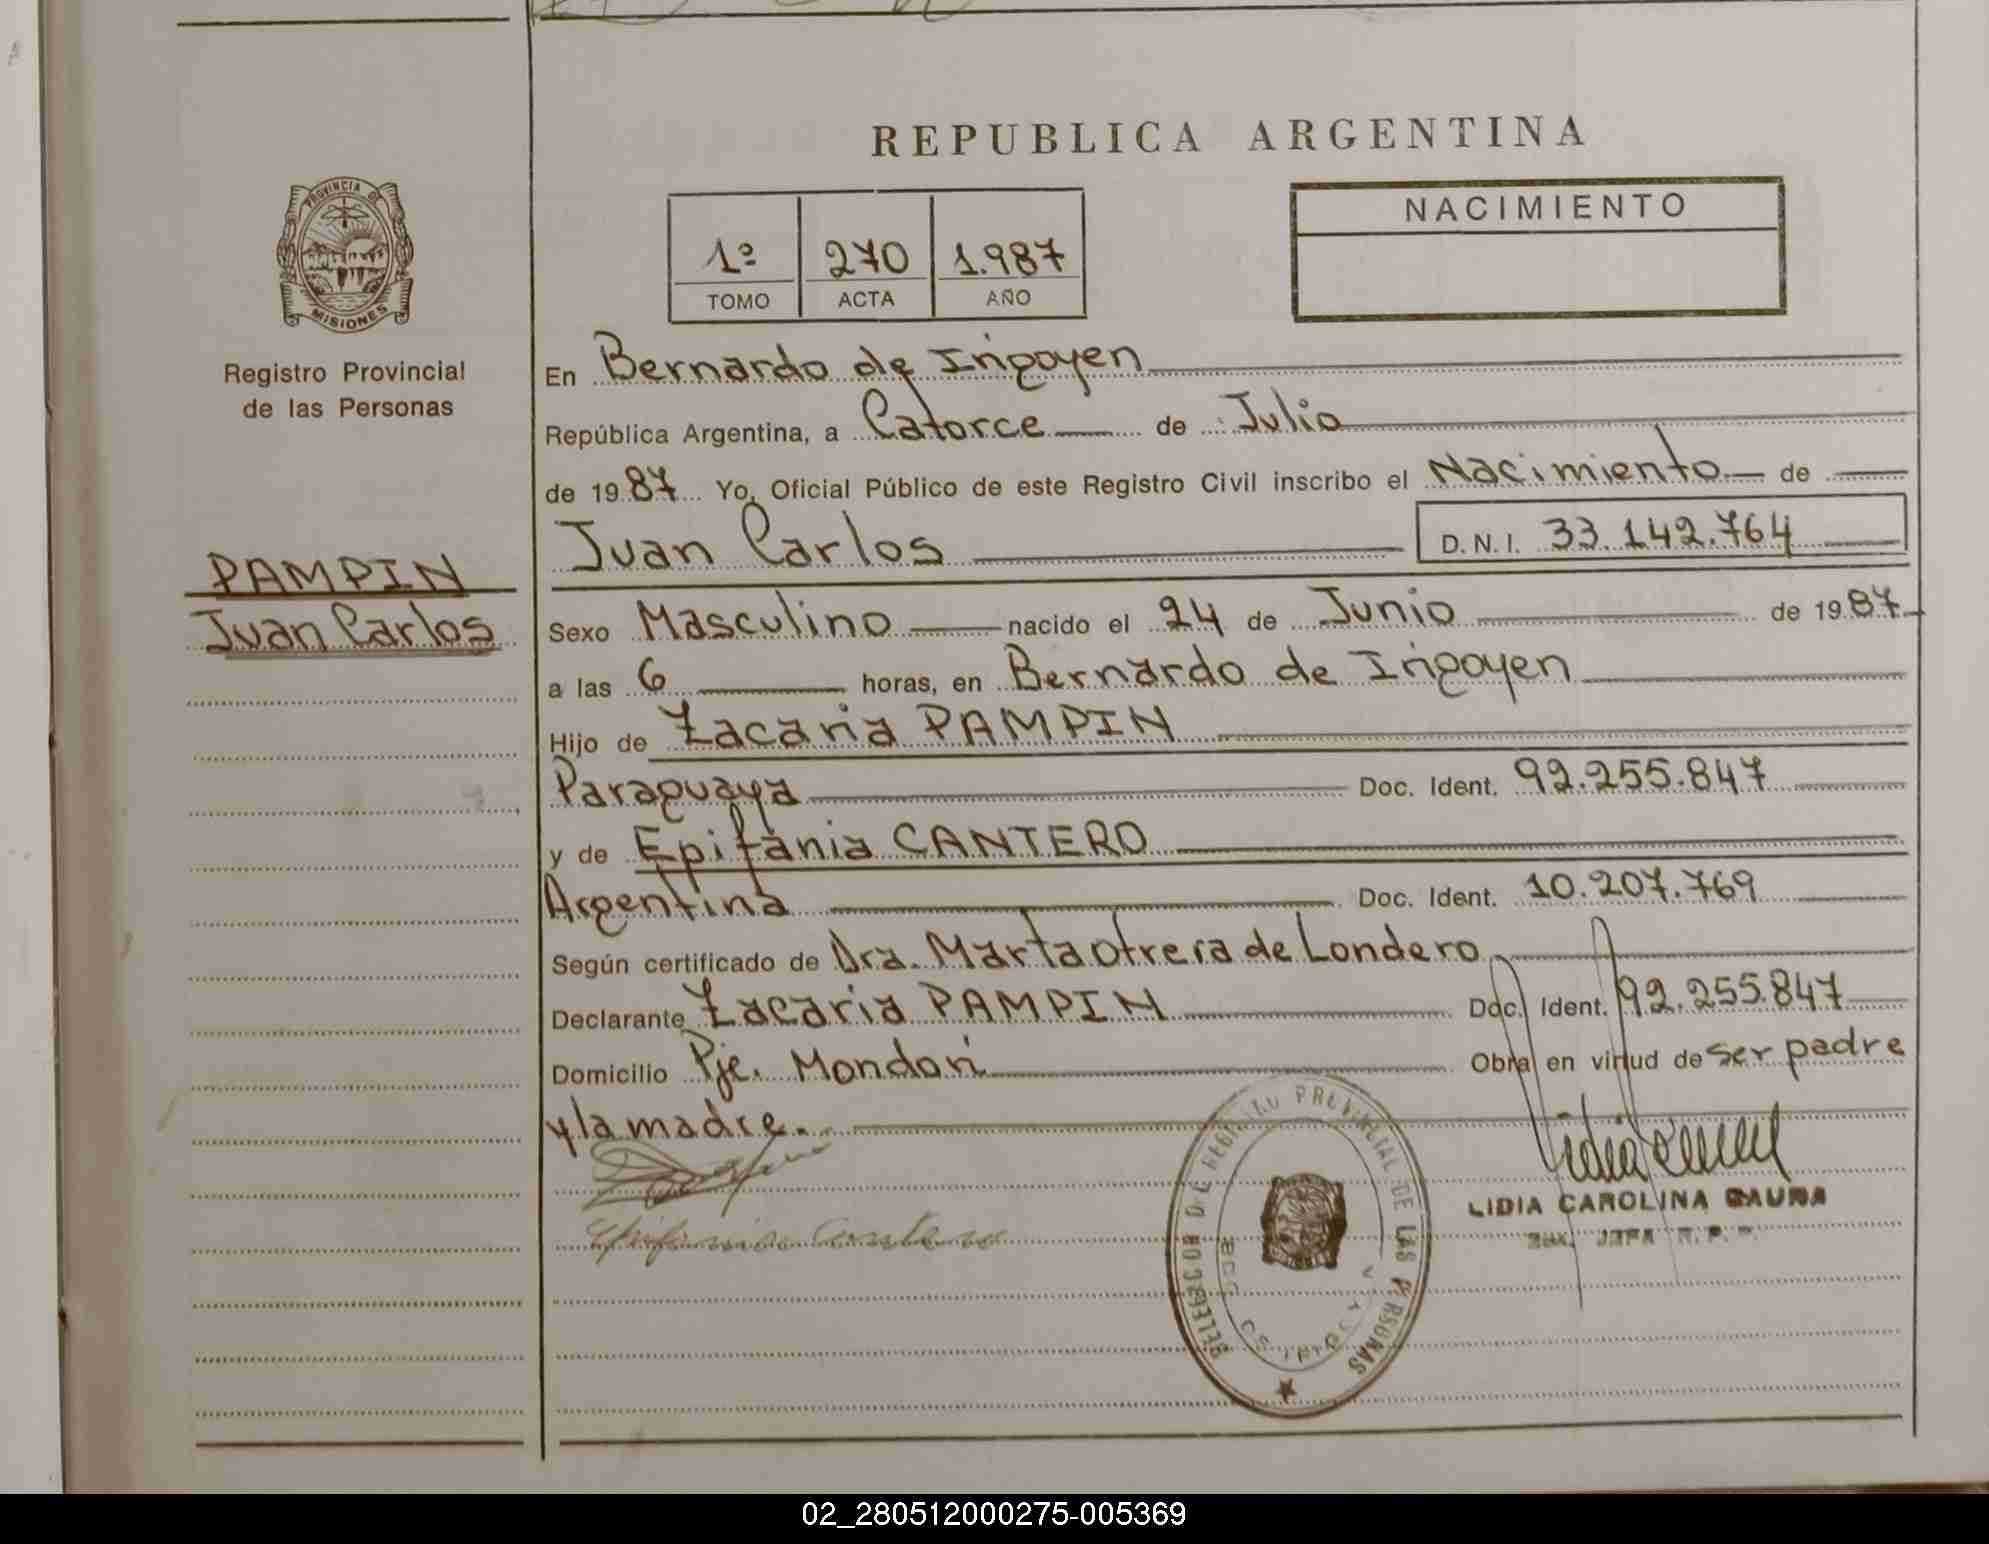 REPUBLICA ARGENTINA
PROVINCIA DE MISIONES
Registro Provincial
de las Personas
1º 270 1.987
TOMO ACTA AÑO
NACIMIENTO
En Bernardo de Irigoyen
República Argentina, a Catorce de Julio
de 1987 Yo, Oficial Público de este Registro Civil inscribo el Nacimiento de
Juan Carlos D.N.I. 33.142.764
PAMPIN
Juan Carlos
Sexo Masculino nacido el 24 de Junio de 1987
a las 6 horas, en Bernardo de Irigoyen
Hijo de Zacaria PAMPIN
Paraguaya Doc. Ident. 92.255.847
y de Epifania CANTERO
Argentina Doc. Ident. 10.207.769
Según certificado de Dra. Marta Otrera de Londero
Declarante Zacaria PAMPIN Doc. Ident. 92.255.847
Domicilio Pje. Mondori Obra en virtud de ser padre
y la madre.
Epifania Cantero
REGISTRO PROVINCIAL DE LAS PERSONAS
LIDIA CAROLINA GAUNA
JEFA R. P. P.
02_280512000275-005369